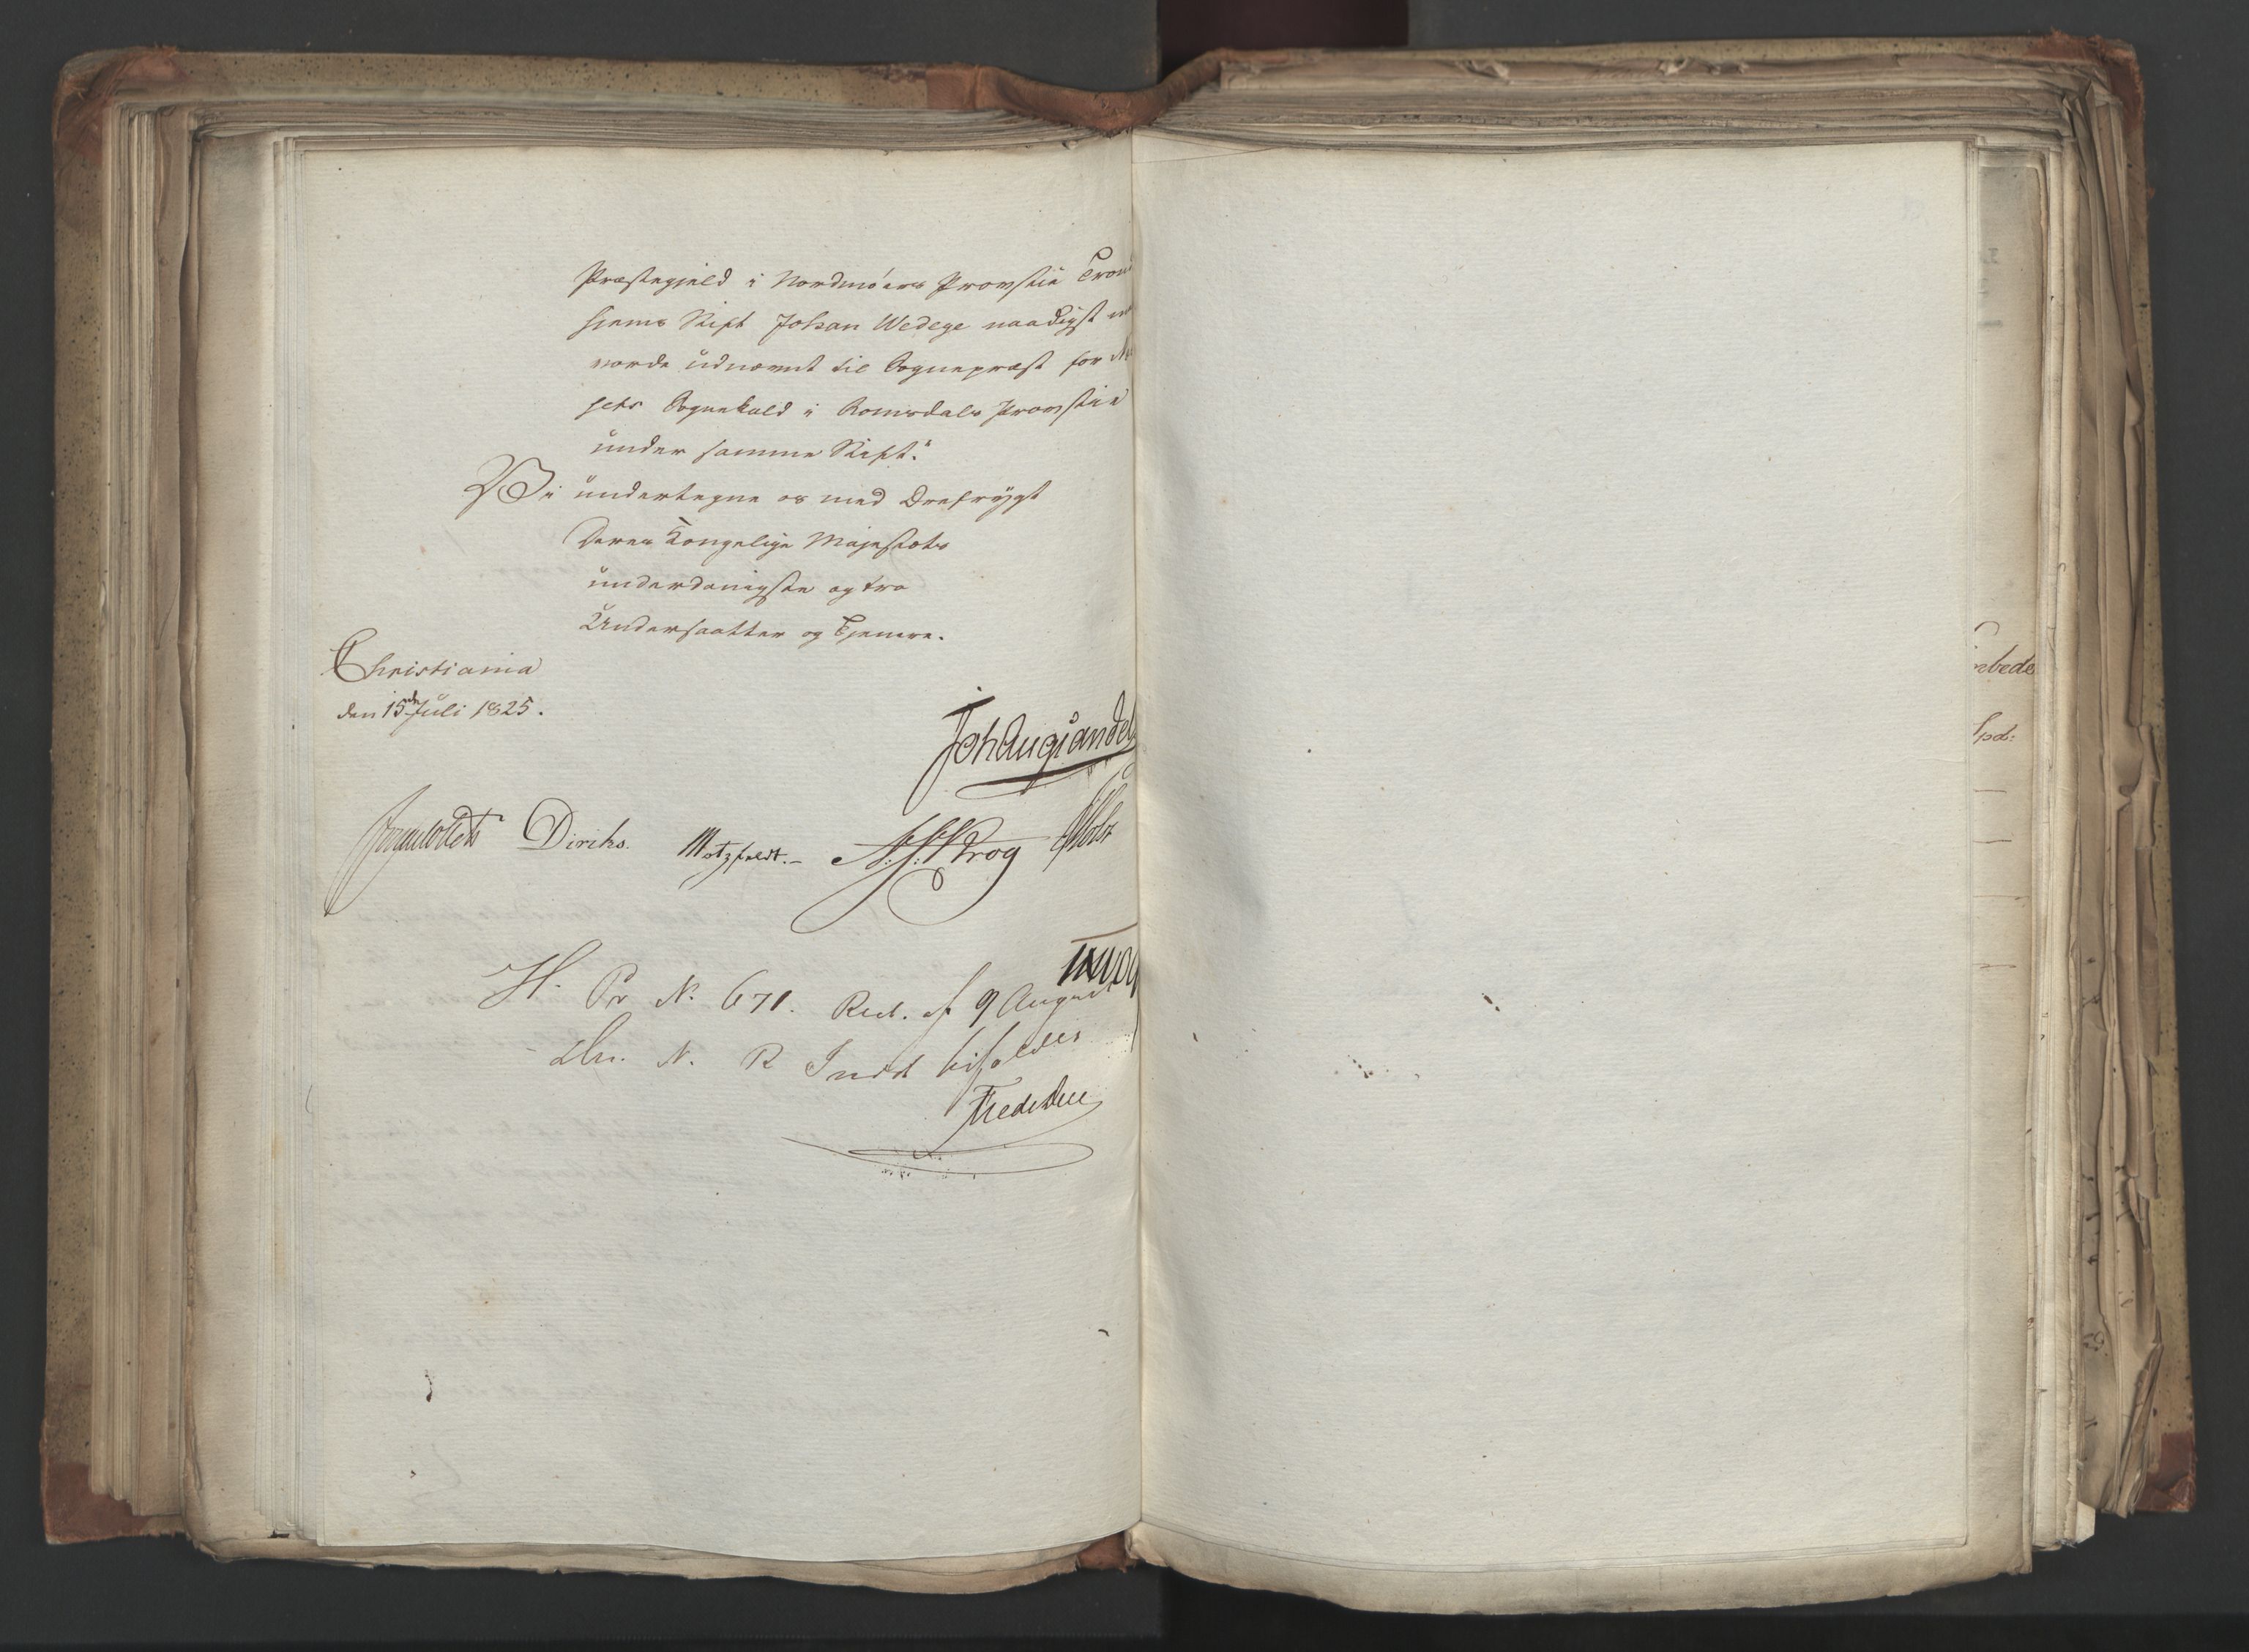 Præstegjeld i Nordmøers Provstie Trond
hjems Stift Johan Wedege naadigst m
vorde udnævnt til Sognepræst for
sets Sognekald i Romsdals Provstie
under samme Stift."
Vi undertegne os med Ærefrygt
Deres Kongelige Majestæts
underdanigste og troe
Undersaatter og Tjenere.
Christiania
den 15de Juli 1825.
Collett Diriks. Motzfeldt. Krog Holst
H. Pr N. 671. Res. af 9 August
N. R Indst bifaldes
Fredr Due